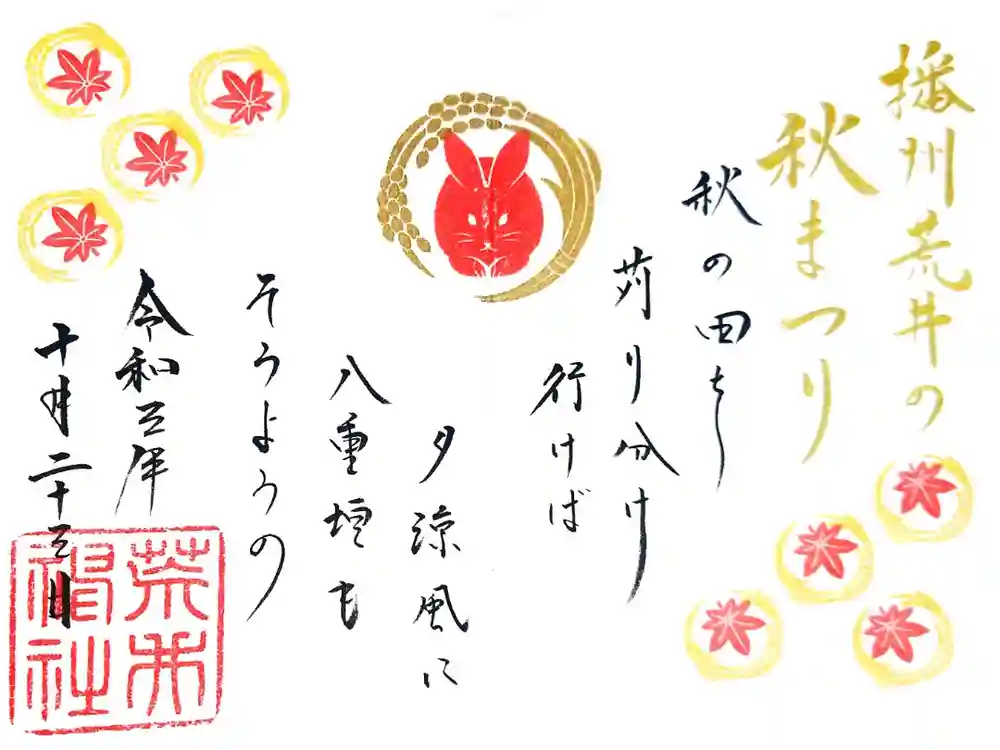 播州荒井の
秋まつり
秋の田を
苅り分け
行けば
夕涼風に
八重垣も
そうようの
令和三年
十月二十三日
荒井
神社